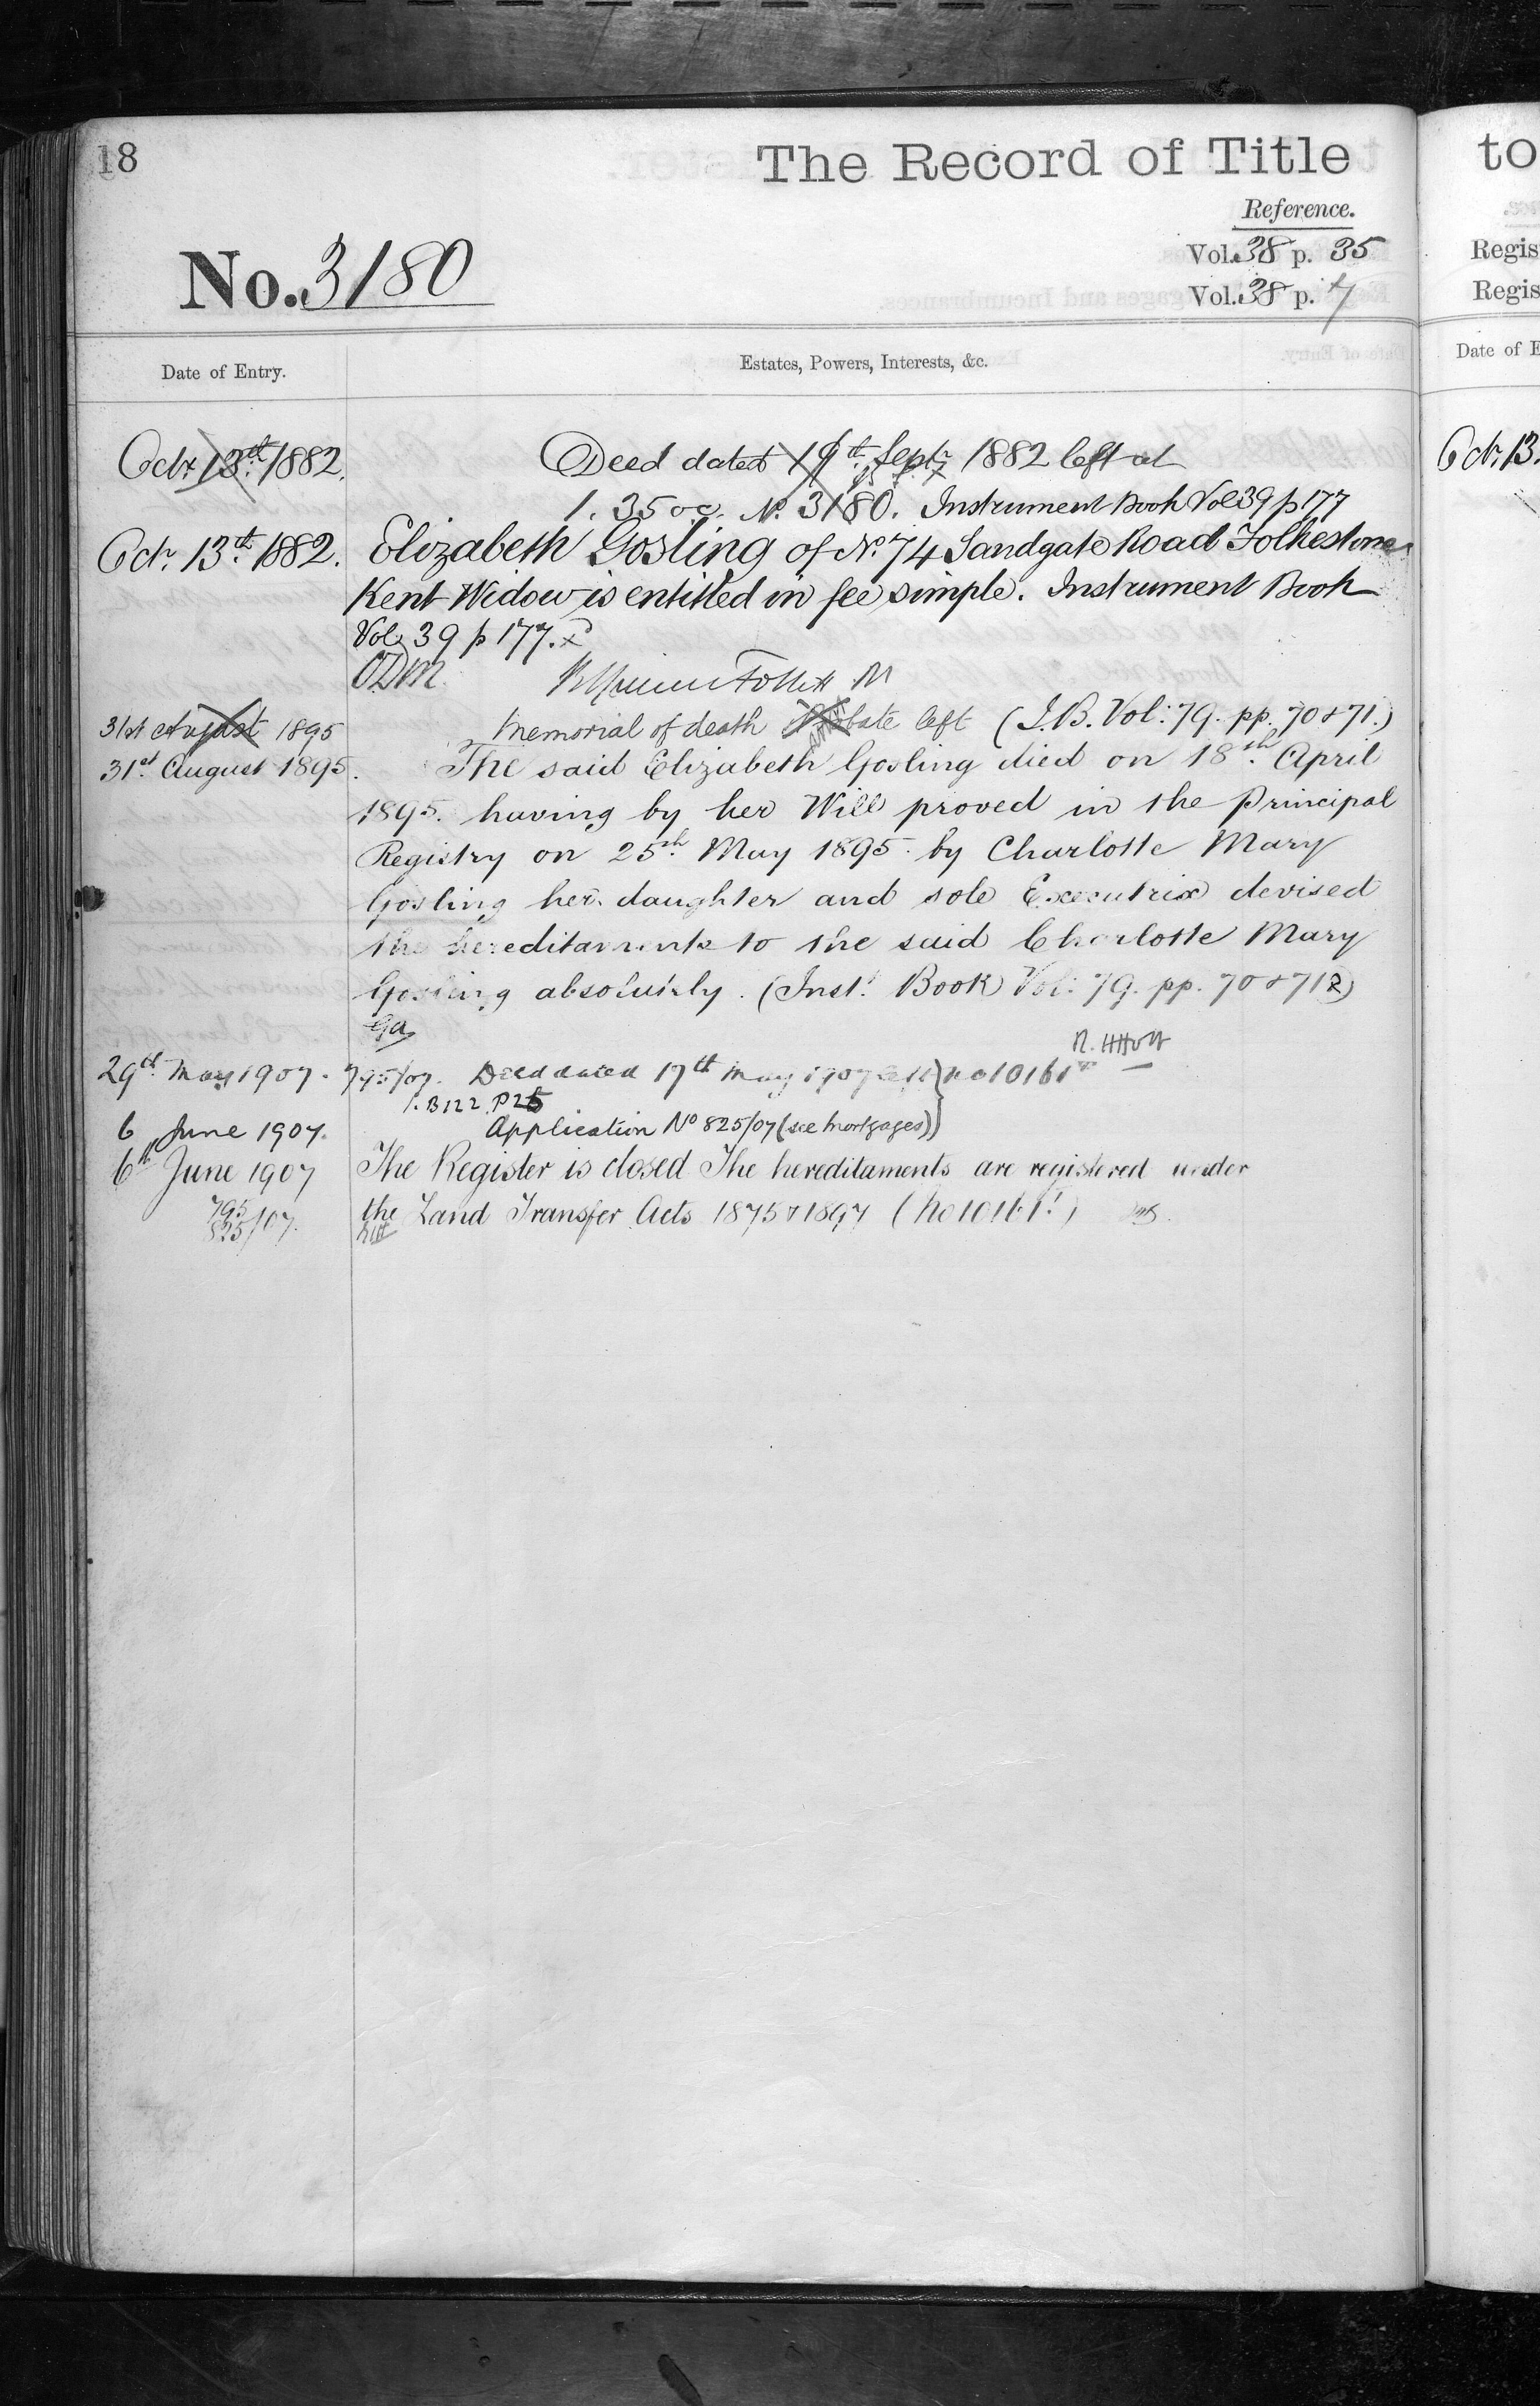 18
The Record of Title
to
Reference.
Vol. 38 p. 35
Regis
No. 3180
Vol. 38 p. 7
Regis
Date of Entry.
Estates, Powers, Interests, &c.
Date of E
Octr 13th 1882.
Deed dated 19th Septr 1882 left at
Octr 13.
1. 35 oc. No. 3180. Instrument Book Vol 39 p 177
Octr. 13th 1882.
Elizabeth Gosling of No. 74 Sandgate Road Folkestone
Kent Widow is entitled in fee simple. Instrument Book
Vol 39 p 177.
ODM
31st August 1895
Memorial of death Probate left (I.B. Vol: 79. pp. 70 & 71.)
31st August 1895.
The said Elizabeth Gosling died on 18th April
1895. having by her Will proved in the Principal
Registry on 25th May 1895 by Charlotte Mary
Gosling her daughter and sole Executrix devised
the hereditaments to the said Charlotte Mary
Gosling absolutely. (Inst. Book Vol: 79. pp. 70 & 71)
29th May 1907.
795/07. Deed dated 17th May 1907 left } No 10161
1. B122. P25
6 June 1907.
Application No 825/07 (see mortgages)
6th June 1907
The Register is closed The hereditaments are registered under
795
825/07.
the Land Transfer Acts 1875 & 1897 (No 10161)